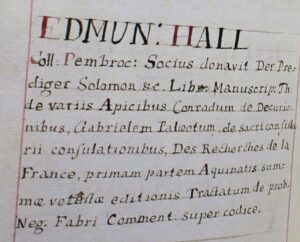 EDMUN: HALL
Coll: Pembroc: Socius donavit Der Pre-
diger Solomon &c. Libr Manuscrip: Th.
de variis Apicibus Conradum de Decurio-
nibus, Gabrielem Palæotum, de sacri consisto
rii consulationibus, Des Recherches de la
France, primam partem Aquinatis sum-
mæ vetustæ editionis Tractatum de prob.
Neg. Fabri Comment super codice.